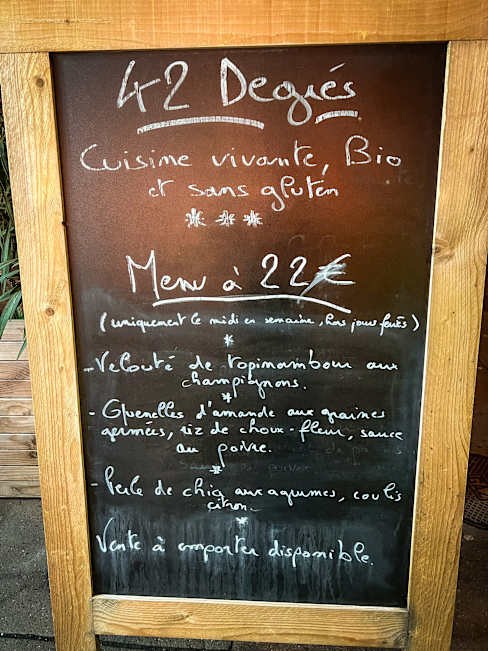 42 Degrés
Cuisine vivante, Bio
et sans gluten
Menu à 22€
(uniquement le midi en semaine, hors jours fériés)
- Velouté de topinambour aux
champignons.
- Quenelles d'amande aux graines
germées, riz de choux-fleur, sauce
au poivre.
- Perle de chia aux agrumes, coulis
citron.
Vente à emporter disponible.